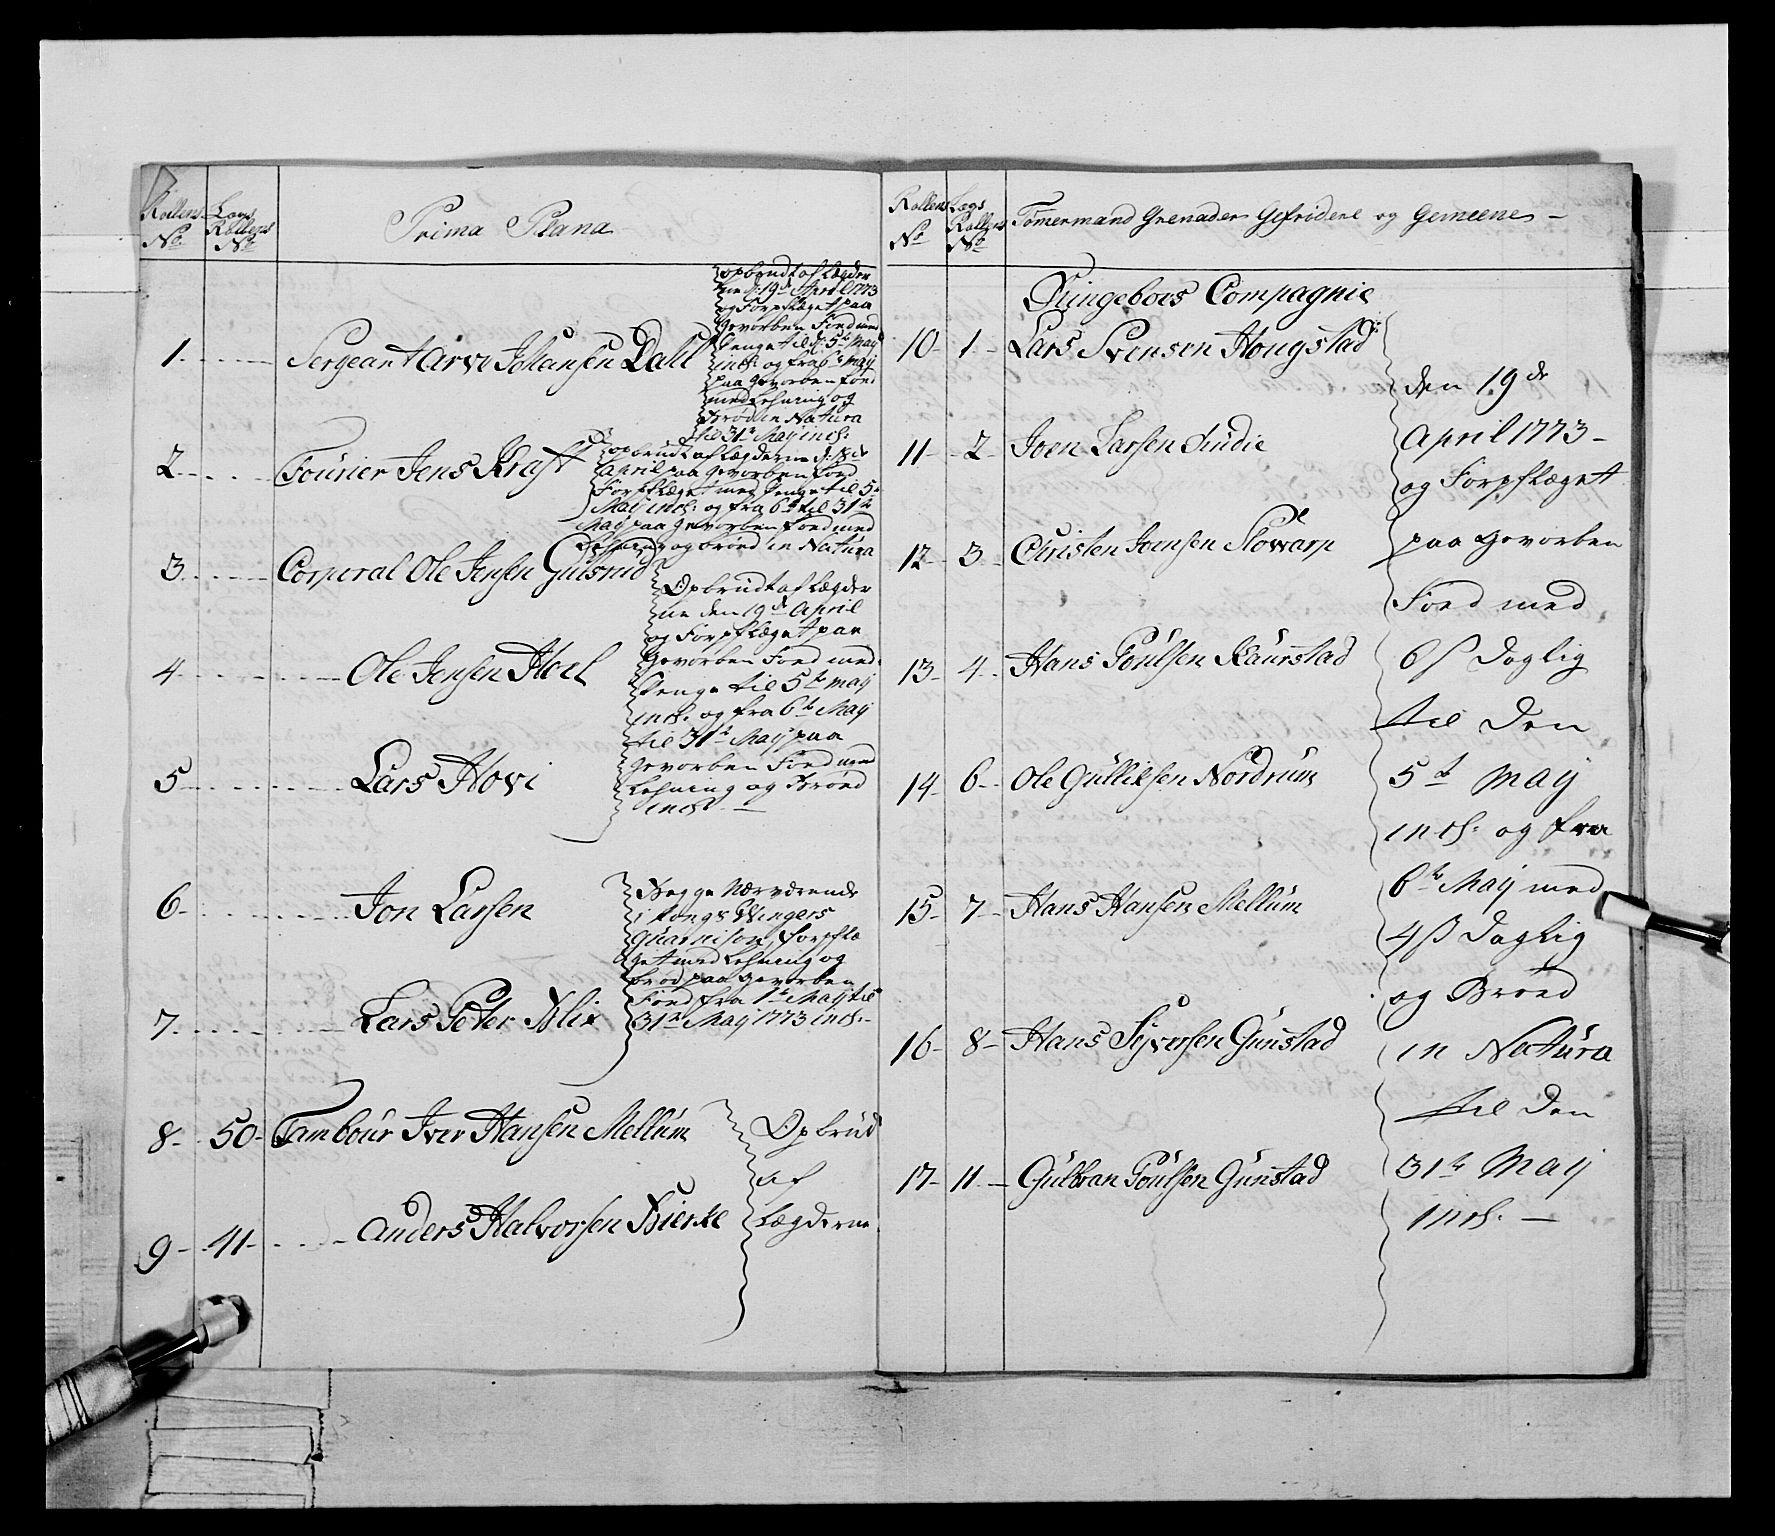 Rollens Lægs
No Rollens
No
Prima Plana
opbrudt af Lægder
ne d: 19de April 1773
og Forpfleget paa
Gevorben Foed med
Penge til d: 5te May
incl: og fra 6te May
paa Gevorben Foed
med Lehning og
Brød in Natura
til 31te May incl:
1 Sergeant Arve Johansen Dahl
2 Fourier Jens Kraft
opbrudt af Lægderne d: 18de
April paa Gevorben Foed
Forpfleget med Penge til 5te
May incl: og fra 6te til 31te
May paa Gevorben Foed med
Lehning og brød in Natura
3 Corporal Ole Jensen Gulsrud
Opbrudt af Lægder
ne den 19de April
og Forpfleget paa
Gevorben Foed med
Penge til 5te May
incl. og fra 6te May
til 31te May paa
Gevorben Foed med
Lehning og Brød
incl. —
4 Ole Jensen Hoel
5 Lars Hovi
6 Jon Larsen
Begge Nærværende
i Kongs Wingers
Guarnison, forpfle
get med Lehning og
brød paa Gevorben
Foed fra 1te May til
31te May 1773 incl.
7 Lars Peter Blix
8 50 Tambour Iver Hansen Mellum
Opbrud
af
Lægderne
9 41 Anders Halvorsen Bierke
Rollens Lægs
No Rollens
No
Tømermand Grenader Gefridere og Gemeene —
Ringeboes Compagnie
10 1 Lars Svensen Hougstad
den 19de
April 1773
og Forpfleget
paa Gevorben
Foed med
6 s Daglig
til Den
5te May
incl: og fra
6te May med
4 s Daglig
og Brød
in Natura
til Den
31te May
incl. —
11 2 Joen Larsen
12 3 Christen Joensen
13 4 Hans Poulsen
14 6 Ole Gullicksen Nordrum
15 7 Hans Hansen Mellum
16 8 Hans Syversen Gunstad
17 11 Gulbran Poulsen Gunstad